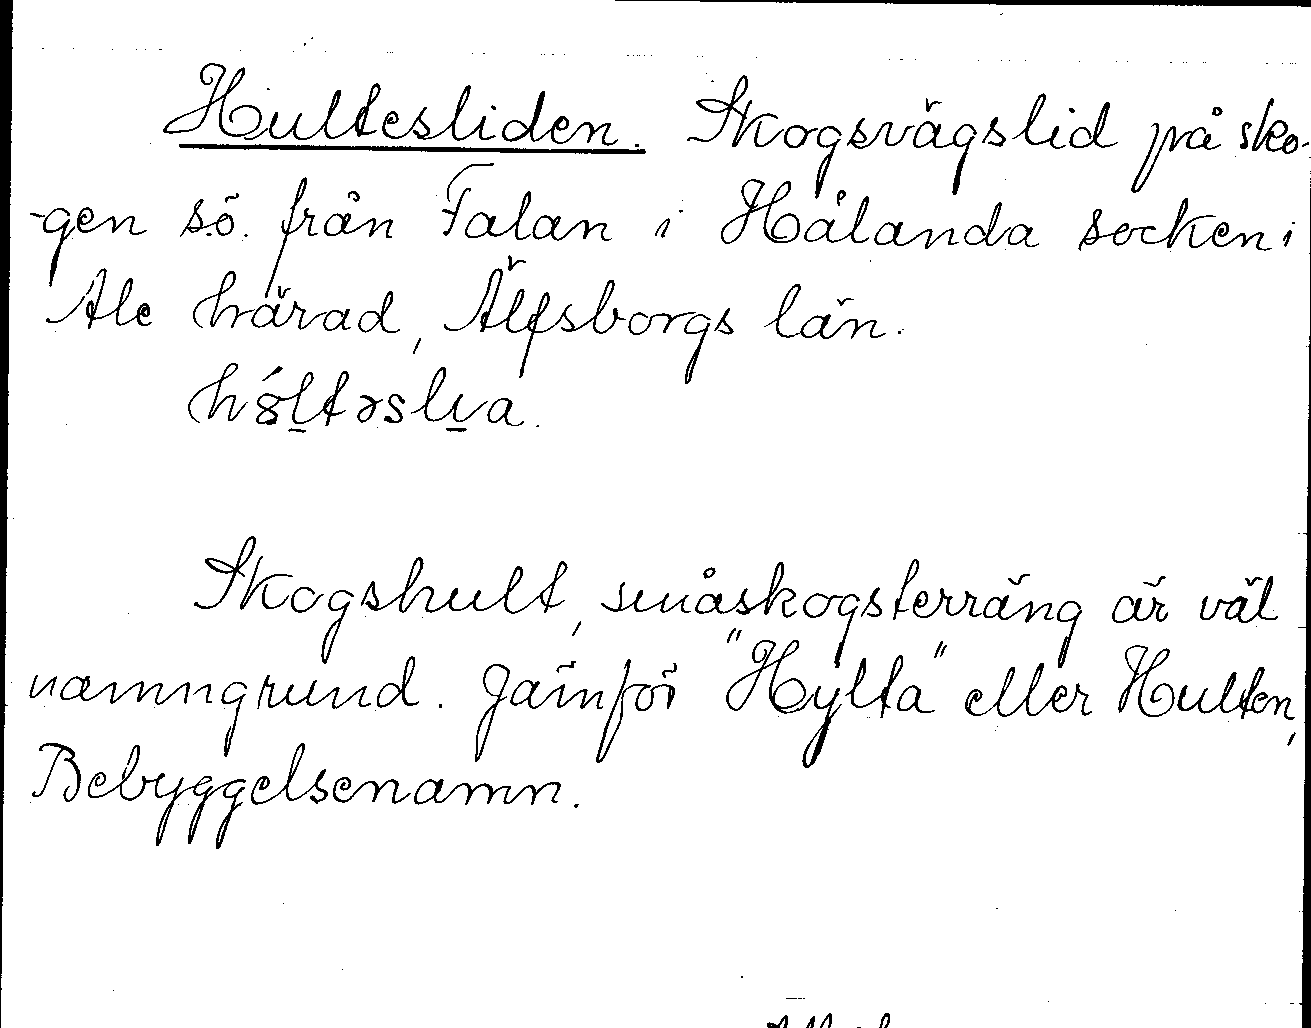 Hultesliden. Skogsvägslid på sko-
gen s.ö. från Falan i Hålanda socken i
Ale härad, Älfsborgs län.
hó̤ltəslɩ̠a.
Skogshult, småskogsterräng är väl
namngrund. Jämför "Hylta" eller Hulten,
Bebyggelsenamn.